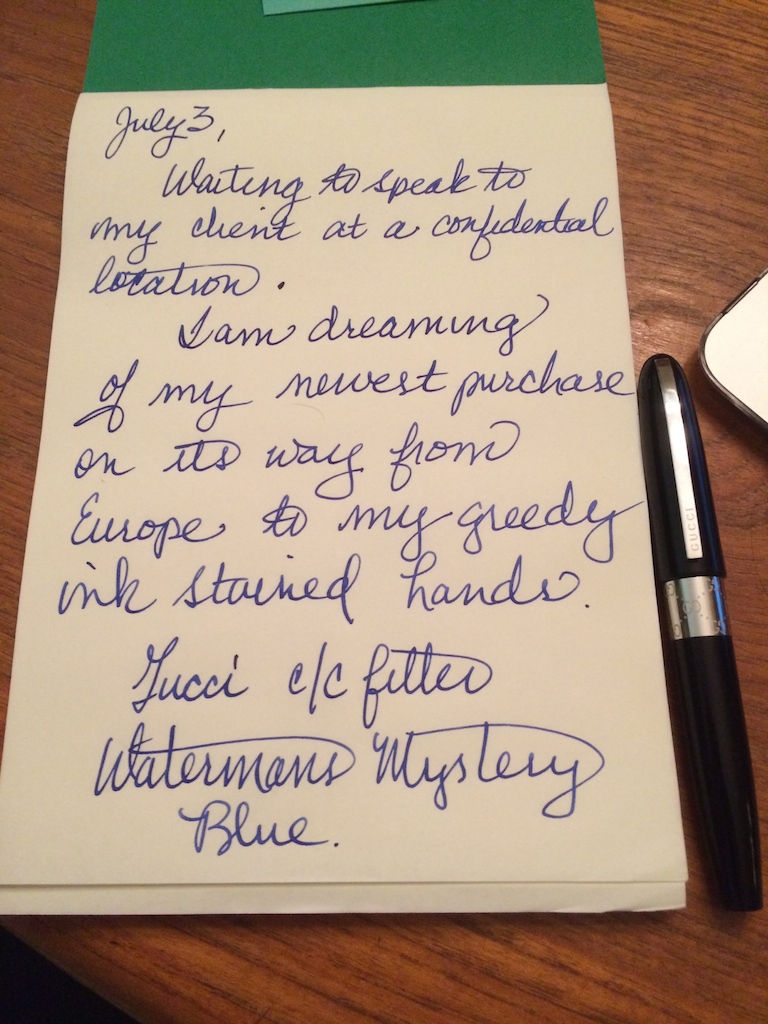 July 3,
Waiting to speak to
my client at a confidential
location.
I am dreaming
of my newest purchase
on its way from
Europe to my greedy
ink stained hands.
Gucci c/c filter
Watermans Mystery
Blue.
GUCCI